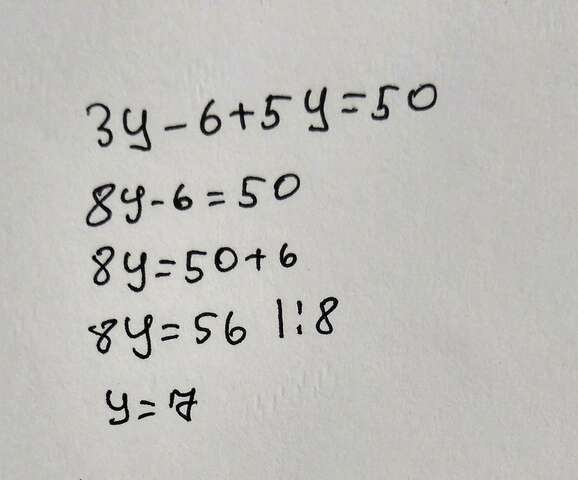 3y-6+5y=50
8y-6=50
8y=50+6
8y=56 |:8
y=7